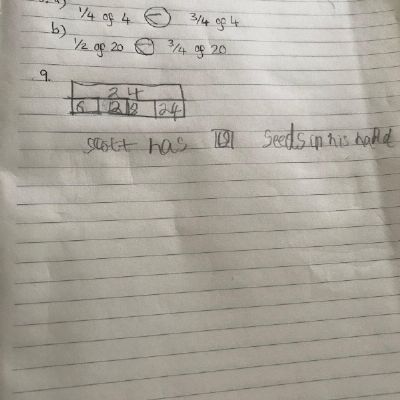 1/4 of 4 < 3/4 of 4
b)
1/2 of 20 < 3/4 of 20
9.
24
6 12 18 24
scott has 18 seeds in his hand